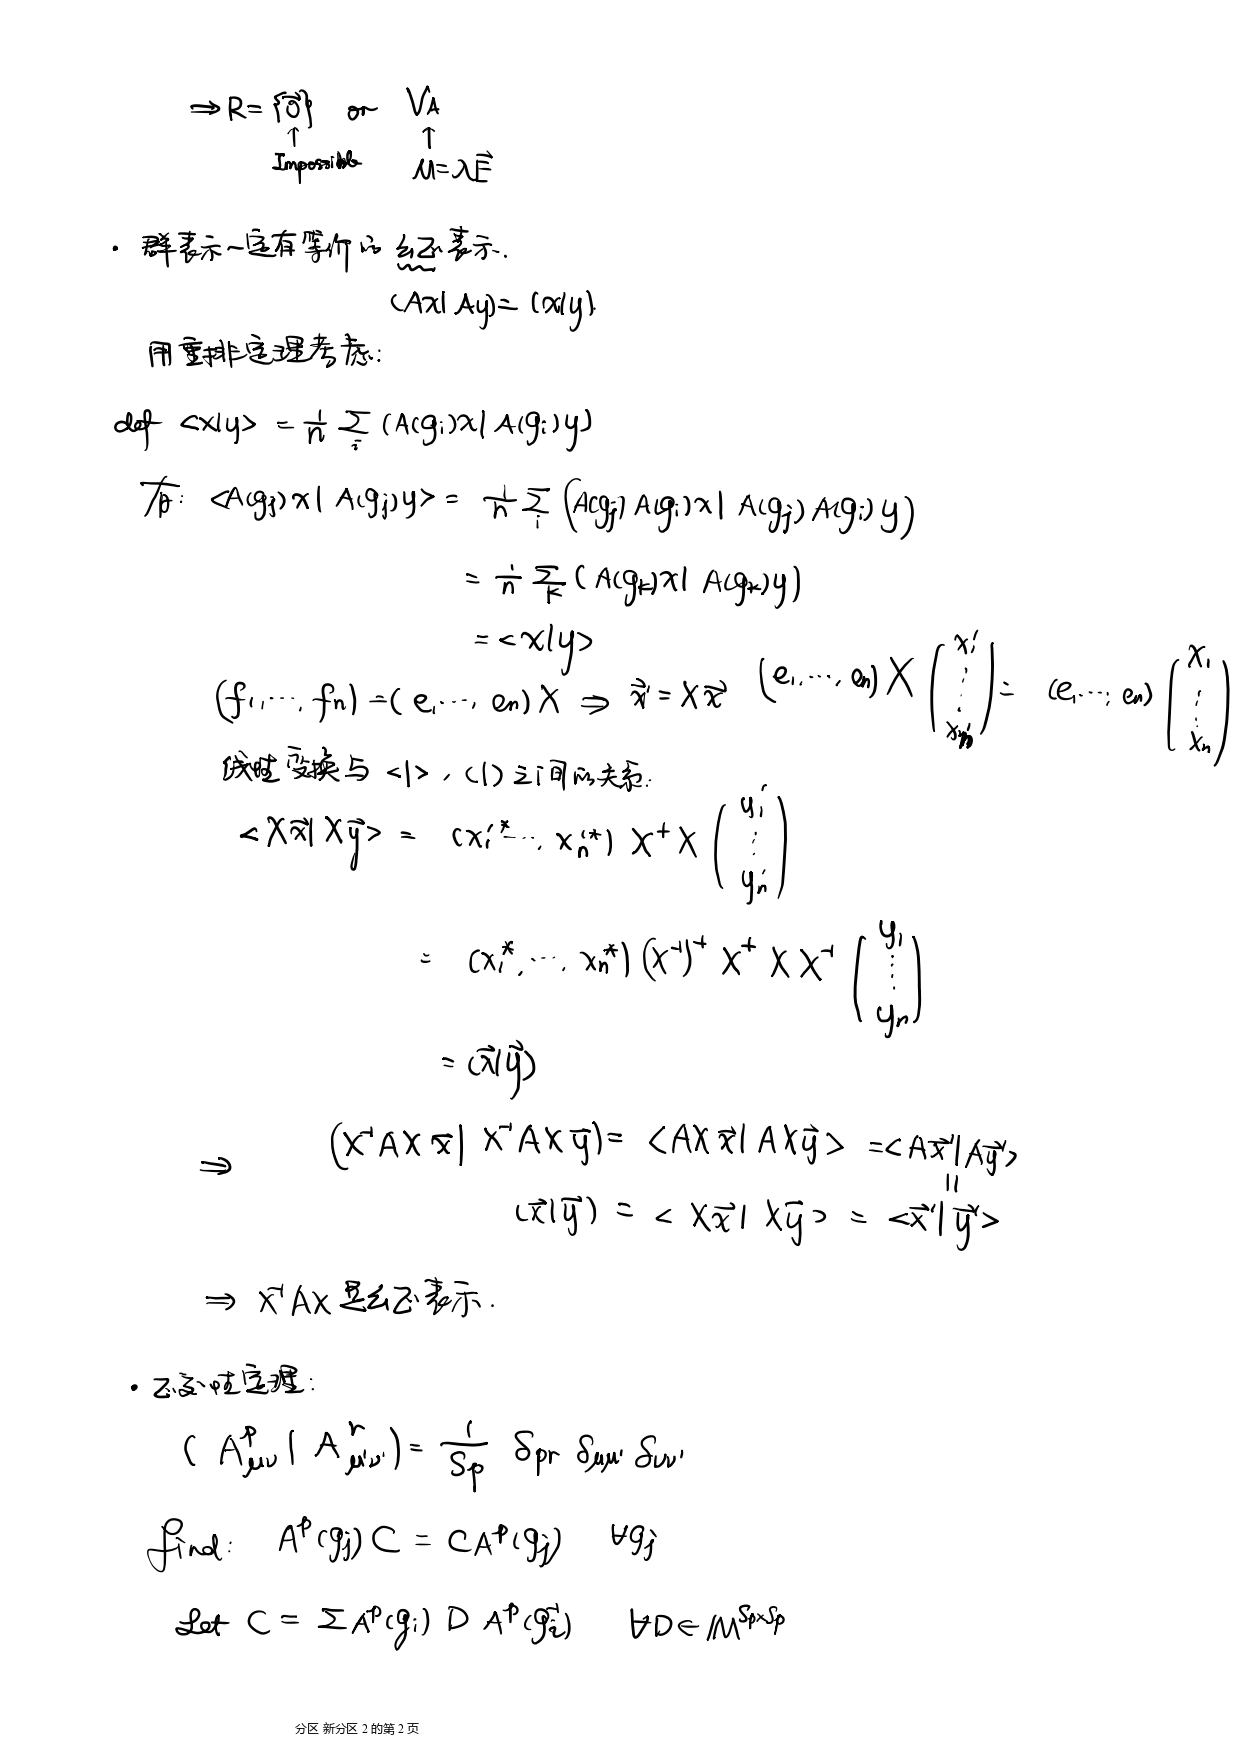 ⇒ R = {0⃗} or V_A
↑ ↑
Impossible M = λE⃗
· 群表示一定有等价的幺正表示.
(Ax| Ay) = (x|y)
用重排定理考虑:
def <x|y> = 1/n Σ_i (A(g_i)x| A(g_i)y)
有: <A(g_j)x| A(g_j)y> = 1/n Σ_i (A(g_j)A(g_i)x| A(g_j)A(g_i)y)
= 1/n Σ_k (A(g_k)x| A(g_k)y)
= <x|y>
(f_1,⋯, f_n) = (e_1,⋯, e_n)X ⇒ x⃗' = Xx⃗ (e_1,⋯, e_n) X (x_1' ⋮ x_n') = (e_1,⋯, e_n) (x_1 ⋮ x_n)
线性变换与 <|>, (|) 之间的关系:
<Xx⃗| Xy⃗> = (x_1'^*⋯, x_n'^*) X^+ X (y_1' ⋮ y_n')
= (x_1^*,⋯, x_n^*) (X^-1)^+ X^+ X X^-1 (y_1 ⋮ y_n)
= (x⃗|y⃗)
⇒ (X^-1AXx⃗| X^-1AXy⃗) = <AXx⃗| AXy⃗> = <Ax⃗'|Ay⃗'>
||
(x⃗|y⃗) = <Xx⃗| Xy⃗> = <x⃗'|y⃗'>
⇒ X^-1AX 是幺正表示.
· 正交性定理:
(A^p_μν | A^r_μ'ν') = 1/S_p δ_pr δ_μμ' δ_νν'
find: A^p(g_j) C = CA^p(g_j) ∀g_j
Let C = ΣA^p(g_i) D A^p(g_i^-1) ∀D∈M^{S_p×S_p}
分区 新分区 2 的第 2 页